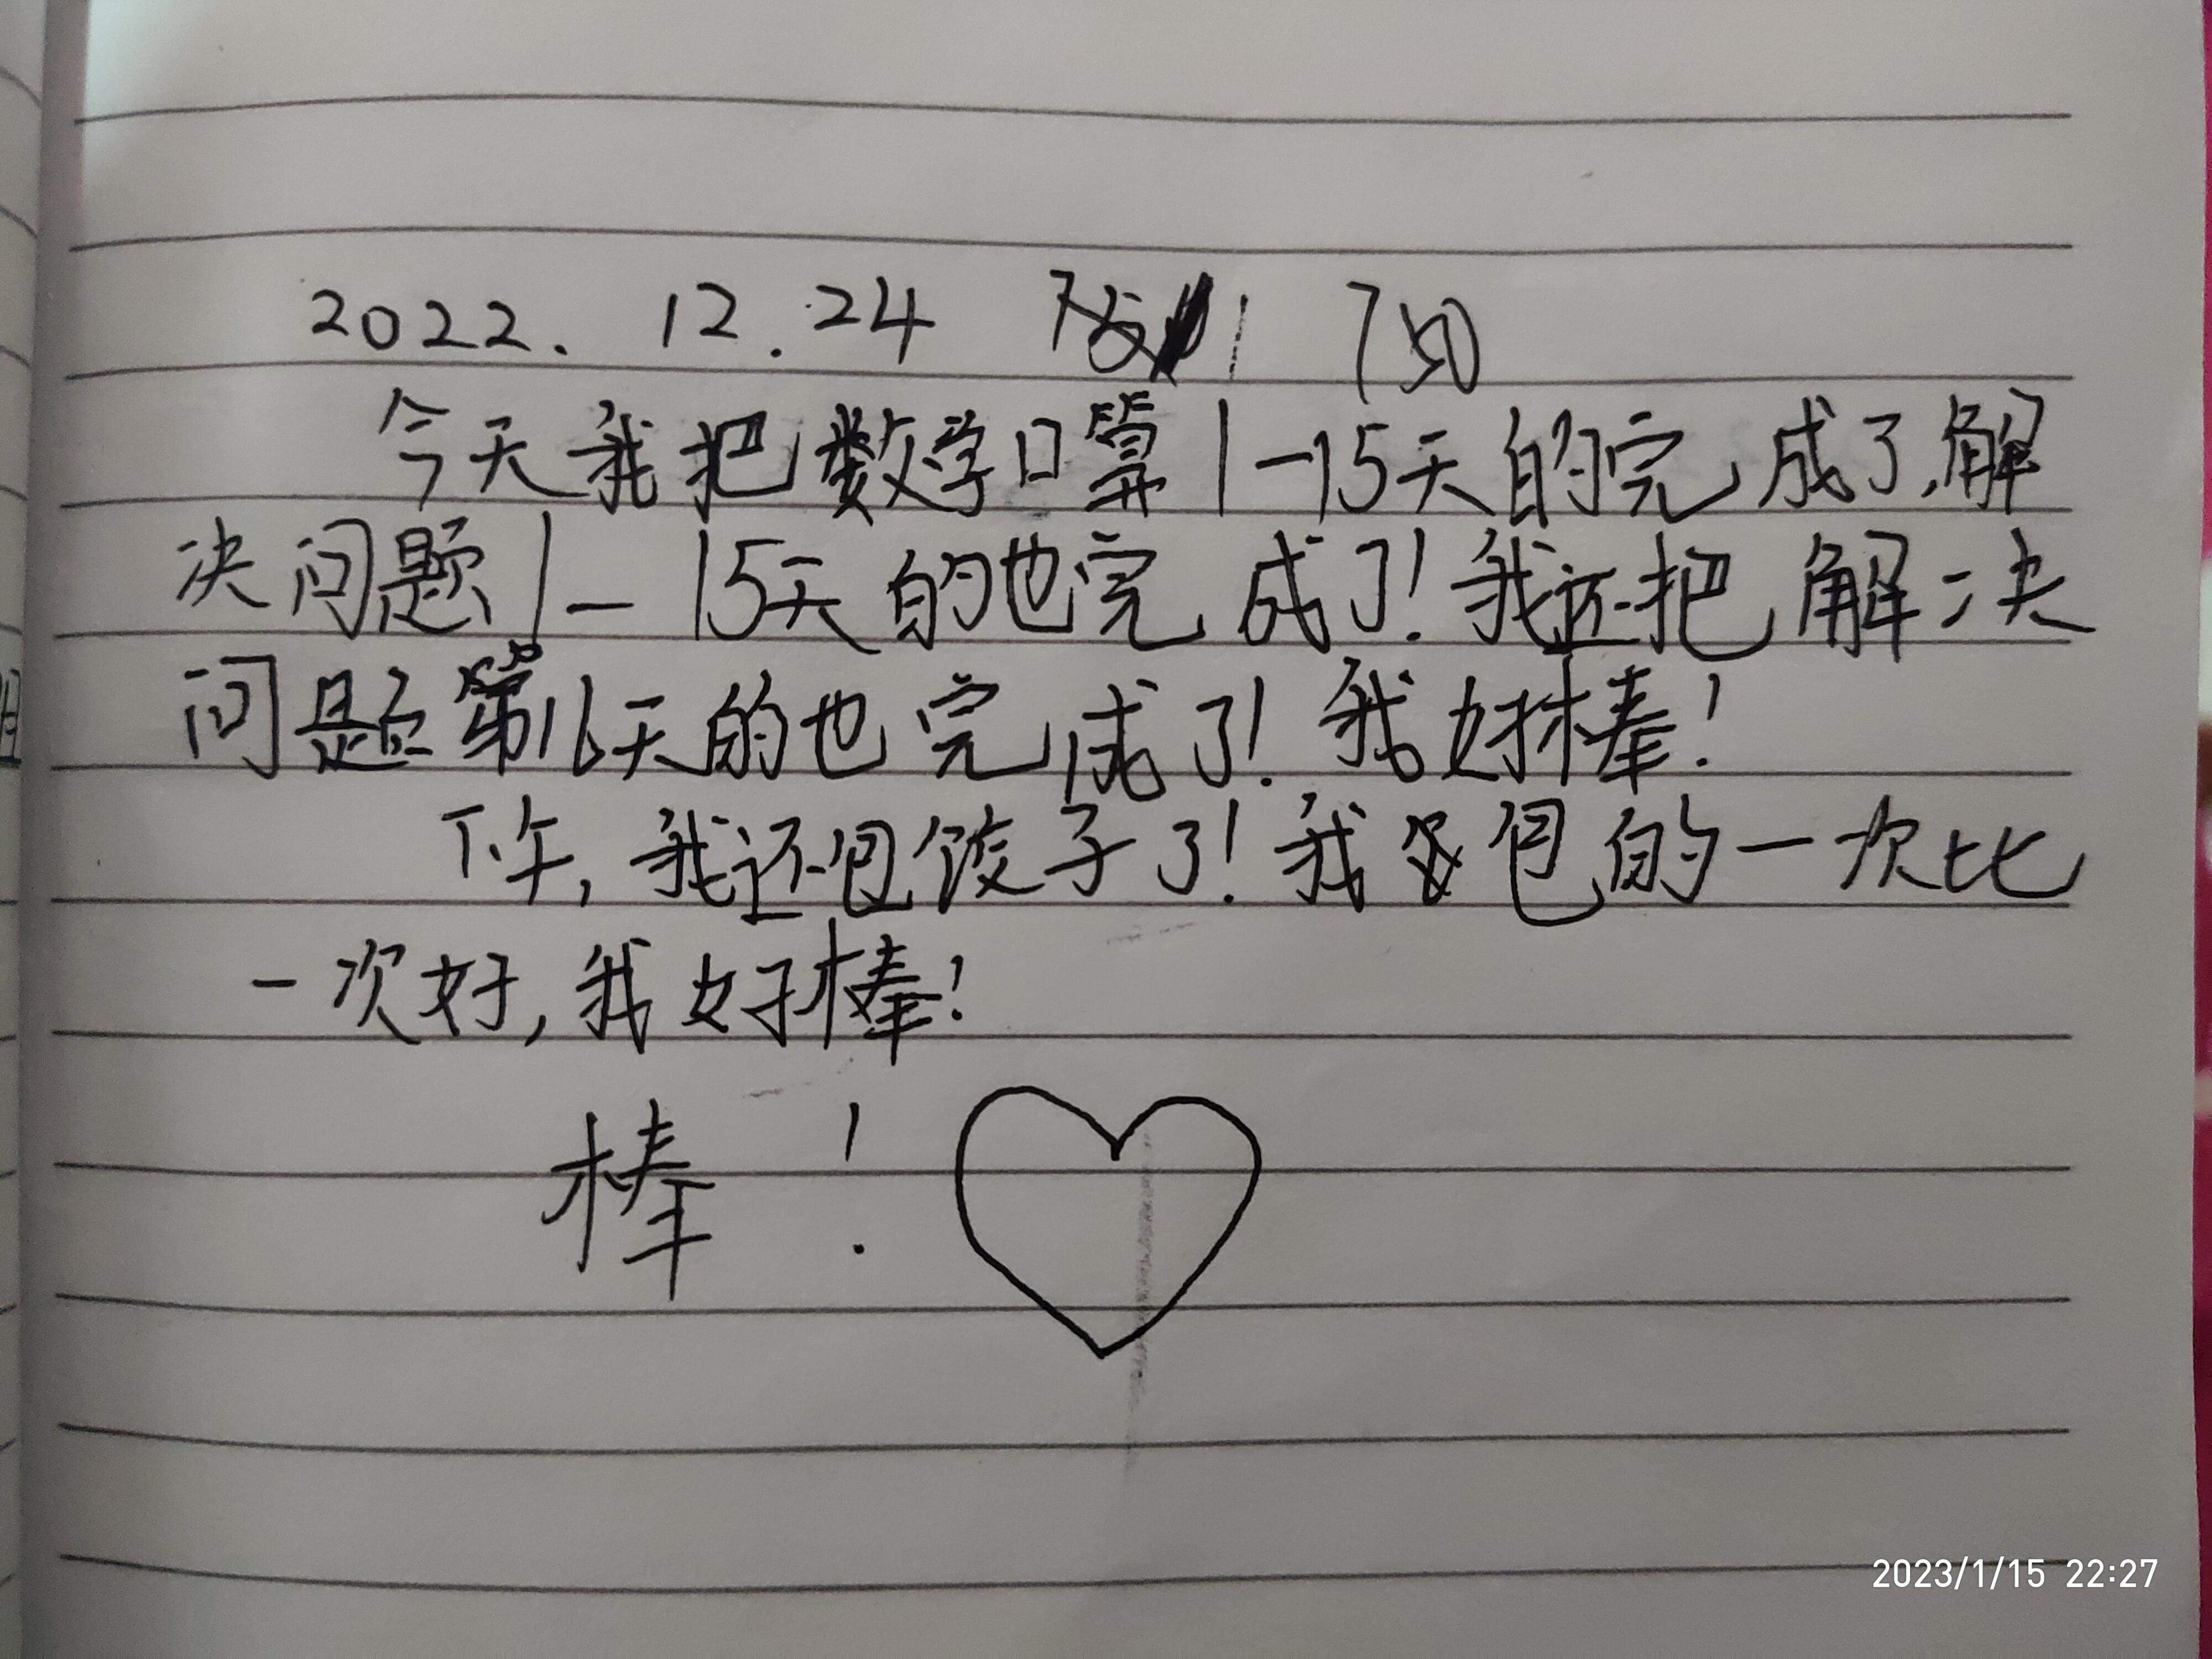 2022. 12.24 750
今天我把数学口算1-15天的完成了,解
决问题1-15天的也完成了!我还把解决
问题第16天的也完成了!我好棒!
下午,我还包饺子了!我包的一次比
一次好,我好棒!
棒!
2023/1/15 22:27